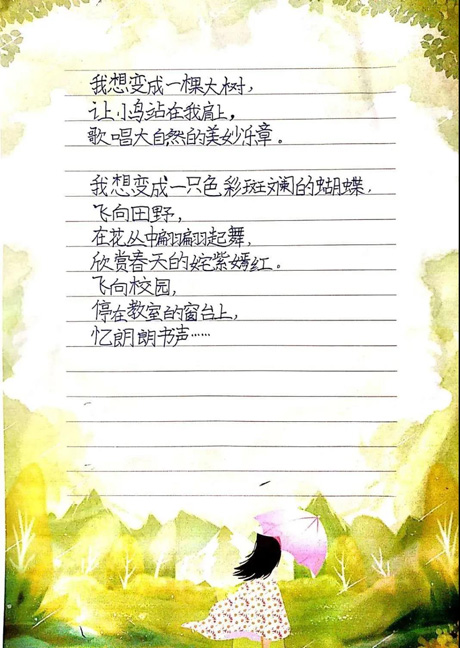 我想变成一棵大树，
让小鸟站在我肩上，
歌唱大自然的美妙乐章。
我想变成一只色彩斑斓的蝴蝶，
飞向田野，
在花丛中翩翩起舞，
欣赏春天的姹紫嫣红。
飞向校园，
停在教室的窗台上，
忆朗朗书声……